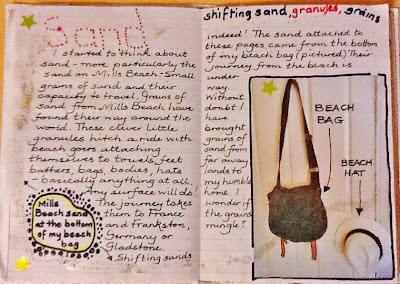 Sand
I started to think about
sand - more particularly the
sand on Mills Beach - Small
grains of sand and their
capacity to travel. Grains of
sand from Mills Beach have
found their way around the
world. These clever little
granules hitch a ride with
beach goers attaching
themselves to towels, feet
bathers, bags, bodies, hats
- basically anything at all.
Any surface will do
The journey takes
them to France
and Frankston,
Germany or
Gladstone.
Shifting sands
Mills
Beach sand
at the bottom
of my beach
bag
shifting sand, granules, grains
indeed! The sand attached to
these pages came from the bottom
of my beach bag (pictured) Their
journey from the beach is
under
way.
Without
doubt I
have
brought
grains of
sand from
far away
lands to
my humble
home. I
wonder if
the grains
mingle?
BEACH
BAG
BEACH
HAT